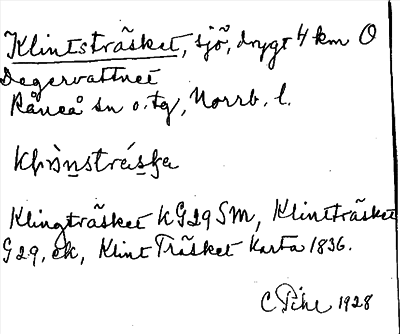 Klintsträsket, sjö, drygt 4 km O
Degervattnet
Råneå sn o. tg, Norrb. l.
Klingträsket KG29SM, Klintträsket
G29, ek, Klint Träsket Karta 1836.
C Pihl 1928